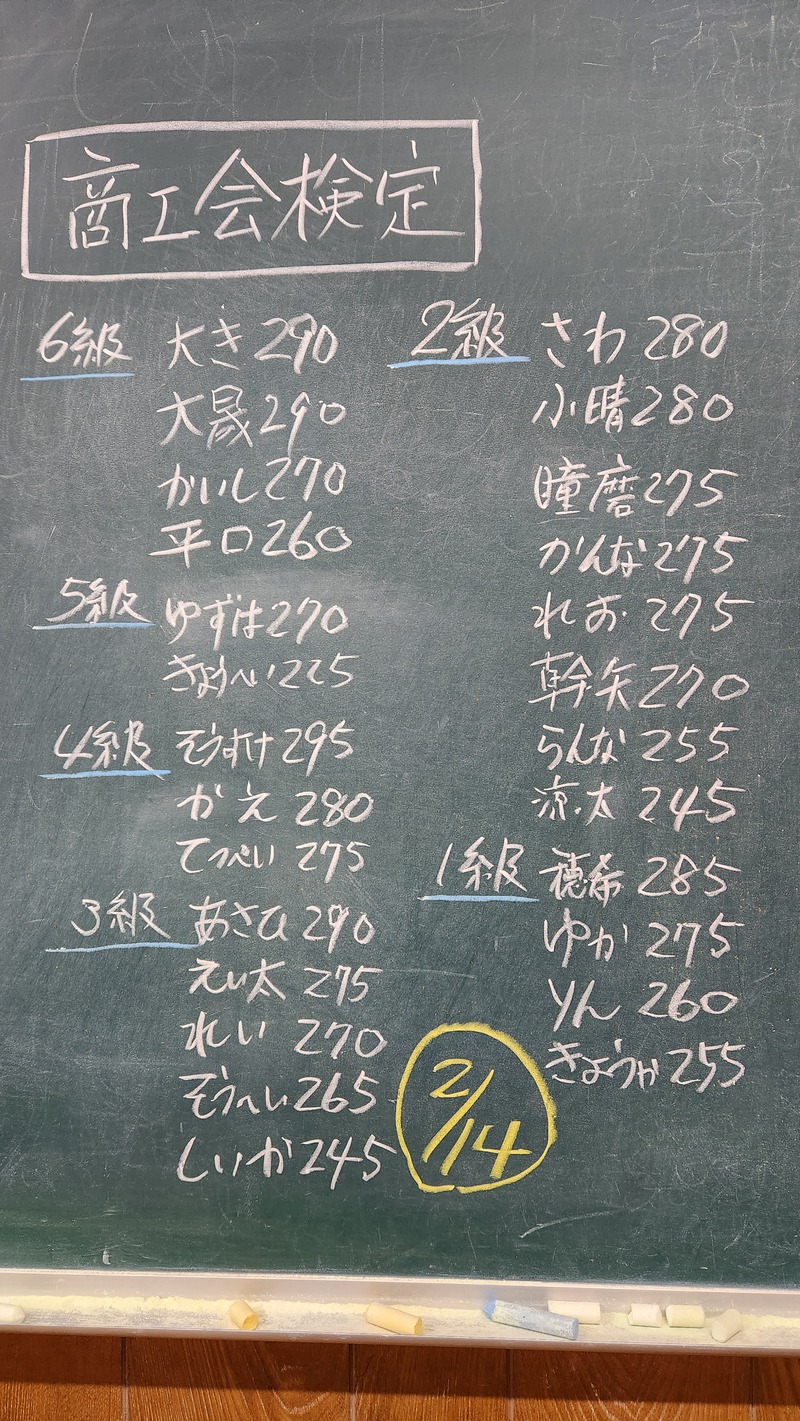 商工会検定
6級 大き 290
大晟 290
かいし 270
平口 260
5級 ゆずは 270
きょうへい 225
4級 そうすけ 295
かえ 280
てっぺい 275
3級 あさひ 290
えい太 275
れい 270
そうへい 265
しいか 245
2級 さわ 280
小晴 280
瞳磨 275
かんな 275
れお 275
幹矢 270
らんな 255
涼太 245
1級 穂希 285
ゆか 275
りん 260
きょうか 255
2/14